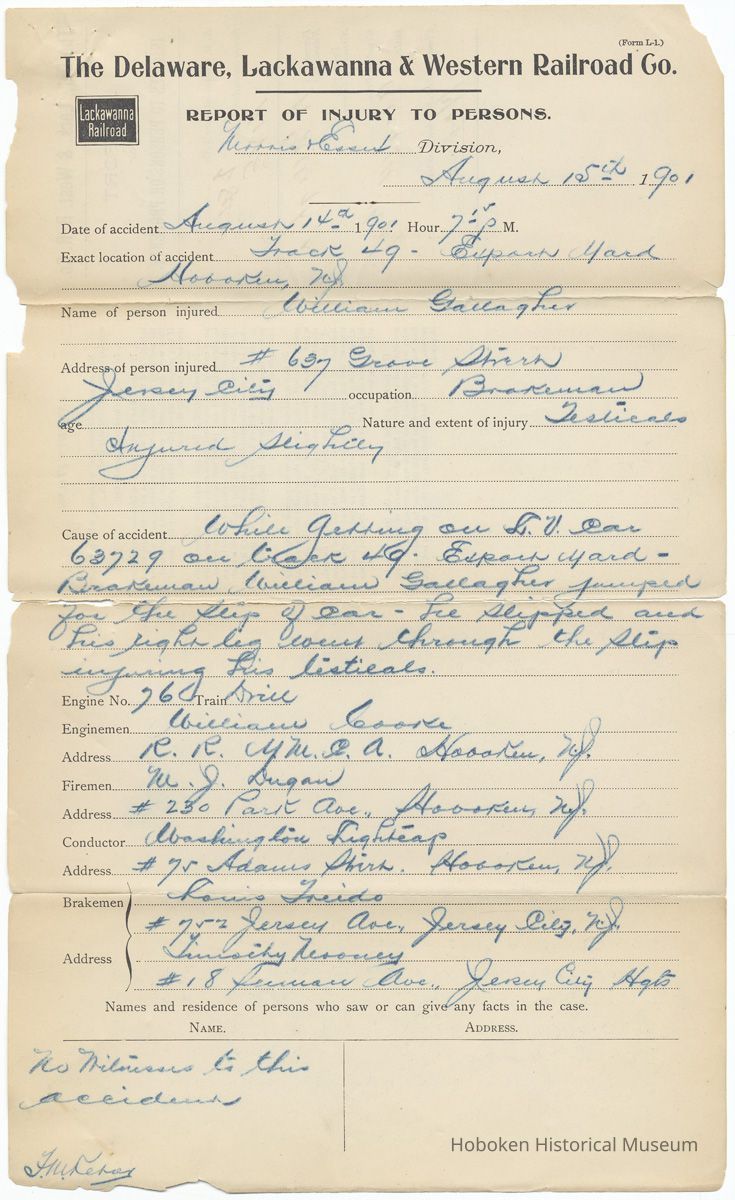 (Form L-1.)
The Delaware, Lackawanna & Western Railroad Co.
Lackawanna
Railroad
REPORT OF INJURY TO PERSONS.
Morris & Essex Division,
August 15th 1901
Date of accident August 14th 1901 Hour 7 15 P M.
Exact location of accident Track 49 - Export Yard
Hoboken, N.J.
Name of person injured William Gallagher
Address of person injured # 637 Grove Street
Jersey City occupation Brakeman
age Nature and extent of injury Testicals
Injured Slightly
Cause of accident While getting on L. V. Car
63729 on track 49 - Export Yard -
Brakeman William Gallagher jumped
for the step of car - he slipped and
his right leg went through the step
injuring his testicals.
Engine No. 76 Train Drill
Enginemen William Cooke
Address R. R. Y.M.C.A. Hoboken, N.J.
Firemen M. J. Dugan
Address # 230 Park Ave., Hoboken, N.J.
Conductor Washington Tightcap
Address # 75 Adams Street. Hoboken, N.J.
Brakemen Louis Freido
# 752 Jersey Ave., Jersey City, N.J.
Address Timothy Mooney
# 18 Ave., Jersey City Hgts
Names and residence of persons who saw or can give any facts in the case.
NAME. ADDRESS.
No Witnesses to this
accident
Hoboken Historical Museum